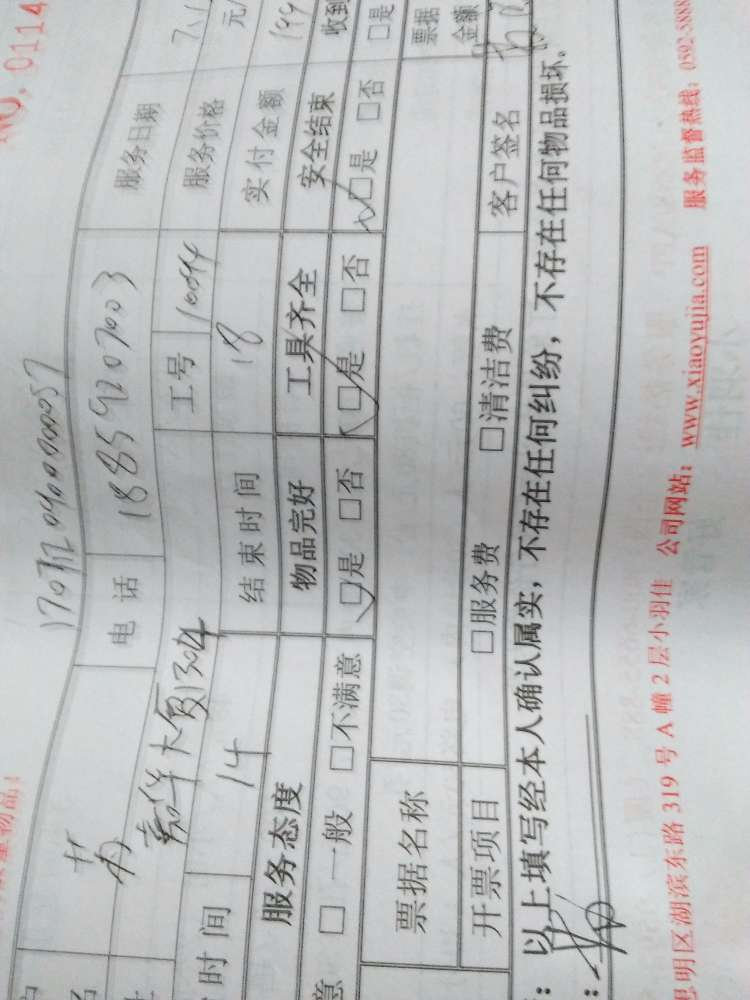 NO. 0114
电话 18859207003 服务日期
嘉华大厦1304 工号 服务价格
时间 14 结束时间 18 实付金额
服务态度 物品完好 工具齐全 安全结束 收到
意 □ 一般 □不满意 □是 □否 □是 □否 □是 □否 □是
票据名称 票据
金额
开票项目 □服务费 □清洁费 客户签名
: 以上填写经本人确认属实,不存在任何纠纷,不存在任何物品损坏。
思明区湖滨东路 319 号 A 幢 2 层小羽佳 公司网站: www.xiaoyujia.com 服务监督热线: 0592-5888